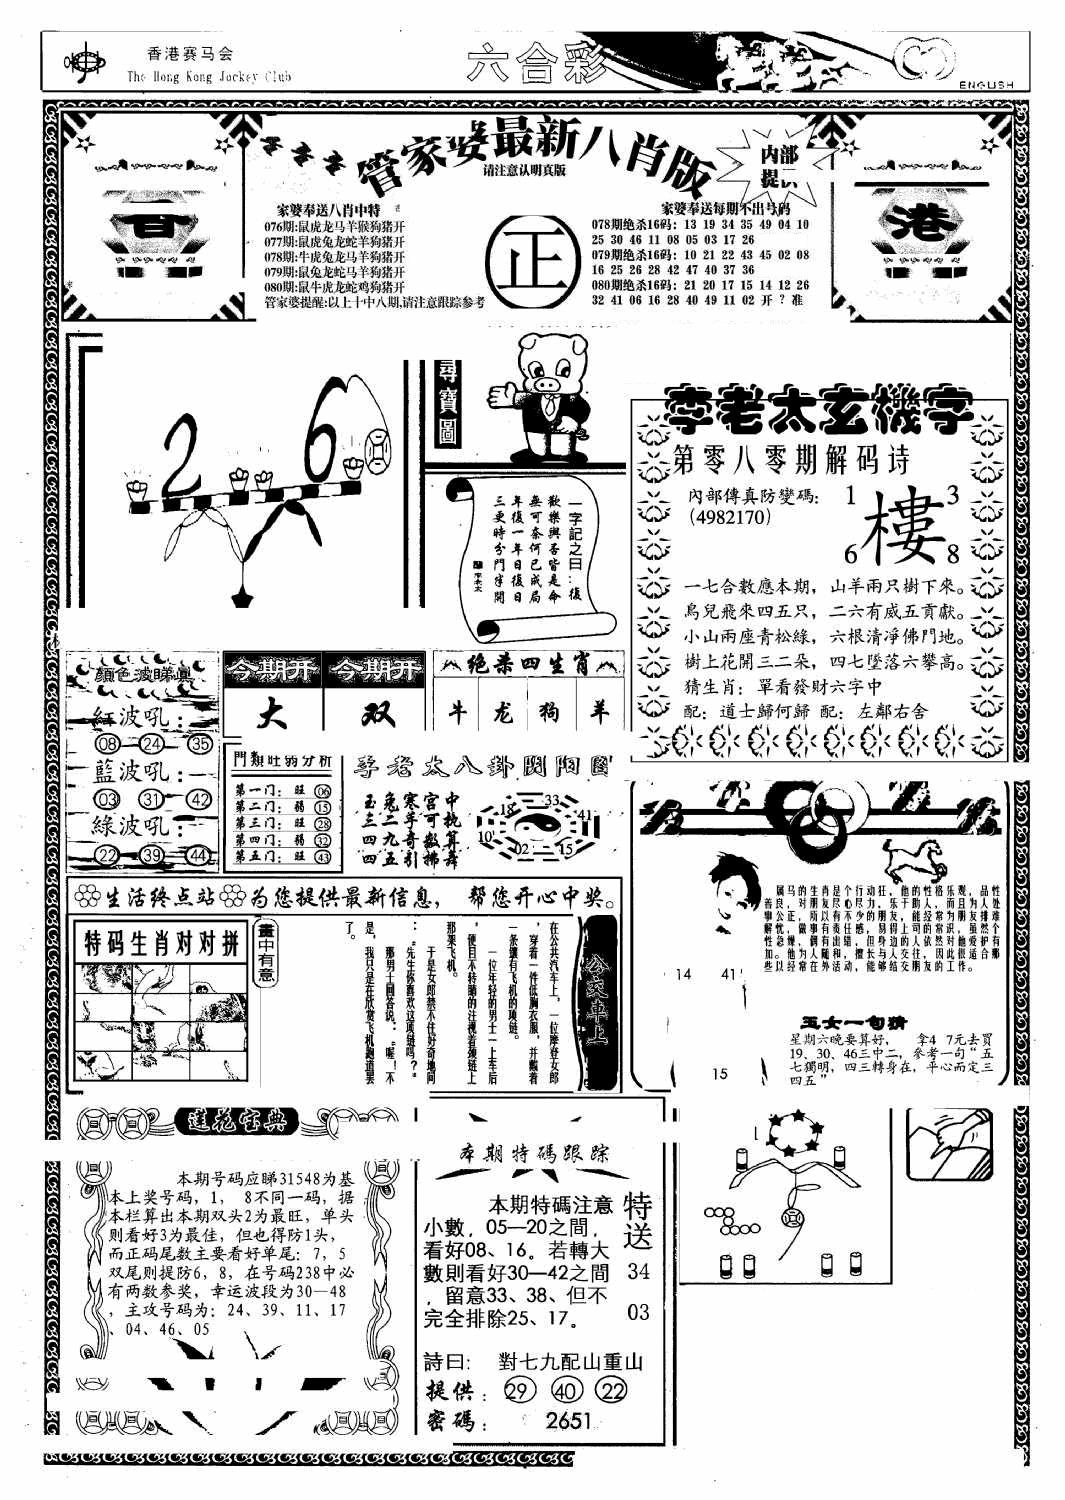 香港赛马会
The Hong Kong Jockey Club
六合彩
ENGLISH
管家婆最新八肖版
请注意认明真版
内部
提
港
家婆奉送八肖中特
076期:鼠虎龙马羊猴狗猪开
077期:鼠虎兔龙蛇羊狗猪开
078期:牛虎兔龙马羊狗猪开
079期:鼠兔龙蛇马羊狗猪开
080期:鼠牛虎龙蛇鸡狗猪开
管家婆提醒:以上十中八期,请注意跟踪参考
正
家婆奉送每期不出号码
078期绝杀16码: 13 19 34 35 49 04 10
25 30 46 11 08 05 03 17 26
079期绝杀16码: 10 21 22 43 45 02 08
16 25 26 28 42 47 40 37 36
080期绝杀16码: 21 20 17 15 14 12 26
32 41 06 16 28 40 49 11 02 开 ? 准
26
尋寶圖
一字記之曰:復
歡樂與否皆是命
無可奈何已成局
年復一年日復日
三更時分門牢開
李老太玄機字
第零八零期解码诗
內部傳真防變碼:
(4982170)
1 3
樓
6 8
一七合數應本期，山羊兩只樹下來。
鳥兒飛來四五只，二六有威五貢獻。
小山兩座青松綠，六根清凈佛門地。
樹上花開三二朵，四七墜落六攀高。
猜生肖：單看發財六字中
配：道士歸何歸 配：左鄰右舍
顏色波睇真
紅波吼:
08 24 35
藍波吼:
03 31 42
綠波吼:
22 39 44
今期开 今期开
大 双
绝杀四生肖
牛 龙 狗 羊
門類旺弱分析
第一门: 旺 06
第二门: 弱 15
第三门: 旺 28
第四门: 弱 32
第五门: 旺 43
李老太八卦陰陽圖
玉兔寒宫中
三二羊可挑
四九奇数算
四五引拂舞
18 33 41
10 02 15
属马的生肖是个行动狂，他的性格乐观，品性
善良，对朋友尽心尽力，乐于助人，而且为人处
事公正，所以有不少的朋友，能经常为朋友排难
解忧，做事有责任感，易得上司的常识，虽然个
性急燥，偶有出错，但身边的人依然对他爱护有
加。他为人随和，擅长与人交往，因此很适合那
些以经常在外活动，能够结交朋友的工作。
14 41
15
玉女一句猜
星期六晚要算好， 拿4 7元去買
19、30、46三中二，參考一句“五
七獨明，四三轉身在，平心而定三
四五”
生活终点站 为您提供最新信息， 帮您开心中奖。
特码生肖对对拼
畫中有意
公交车上
在公共汽车上，一位摩登女郎
，穿着一件低胸衣服，并戴着
一条镶有飞机的项链。
一位年轻的男士一上车后
，便目不转睛的注视着颈链上
那架飞机。
于是女郎禁不住好奇地问
：“先生你喜欢这项链吗？”
那男士回答说：“喔！不
是，我只是在欣赏飞机跑道罢
了。
蓮花宝典
本期号码应睇31548为基
本上奖号码，1， 8不同一码，据
本栏算出本期双头2为最旺，单头
则看好3为最佳，但也得防1头，
而正码尾数主要看好单尾：7，5
双尾则提防6，8，在号码238中必
有两数参奖，幸运波段为30—48
，主攻号码为：24、39、11、17
、04、46、05
本期特碼跟踪
本期特碼注意
小數，05—20之間，
看好08、16。若轉大
數則看好30—42之間
，留意33、38、但不
完全排除25、17。
特送
34
03
詩曰: 對七九配山重山
提供: 29 40 22
密碼: 2651
1